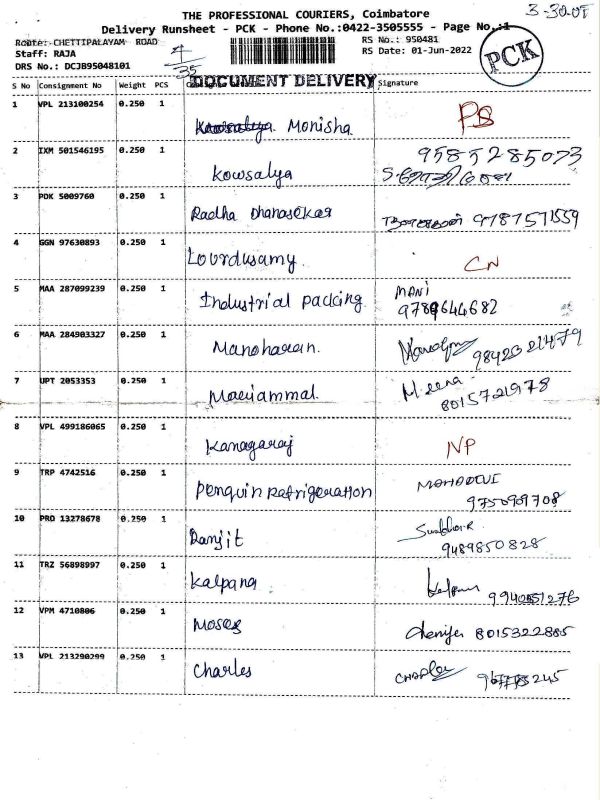 THE PROFESSIONAL COURIERS, Coimbatore
Delivery Runsheet - PCK - Phone No.:0422-3505555 - Page No.:1
Route:-CHETTIPALAYAM ROAD
Staff: RAJA
DRS No.: DCJB95048101
4/35
RS No.: 950481
RS Date: 01-Jun-2022
PCK
DOCUMENT DELIVERY
S No Consignment No Weight PCS Signature
1 VPL 213100254 0.250 1 Monisha PS
2 IXM 501546195 0.250 1 Kowsalya 9585285073
3 PDK 5009760 0.250 1 Radha Dhanasekar 9787571559
4 GGN 97630893 0.250 1 Lourdusamy CN
5 MAA 287099239 0.250 1 Industrial packing MANI 9789644682
6 MAA 284903327 0.250 1 Manoharan. 9842321479
7 UPT 2053353 0.250 1 Mariammal. Meena 8015721978
8 VPL 499186065 0.250 1 Kanagaraj NP
9 TRP 4742516 0.250 1 Penguin Refrigeration
10 PRO 13278678 0.250 1 Ranjit 9489850828
11 TRZ 56898997 0.250 1 Kalpana
12 VPM 4710806 0.250 1 Moses 8015322885
13 VPL 213290299 0.250 1 Charles